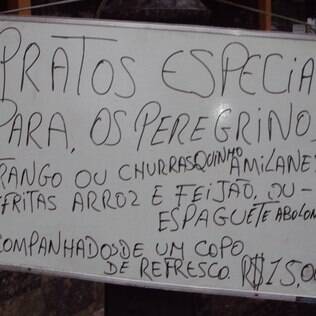 PRATOS ESPECIA
PARA, OS PEREGRINOS
FRANGO OU CHURRASQUINHO AMILANES
FRITAS ARROZ E FEIJÃO, OU-
ESPAGUETE ABOLON
COMPANHADOS DE UM COPO
DE REFRESCO. R$15,00